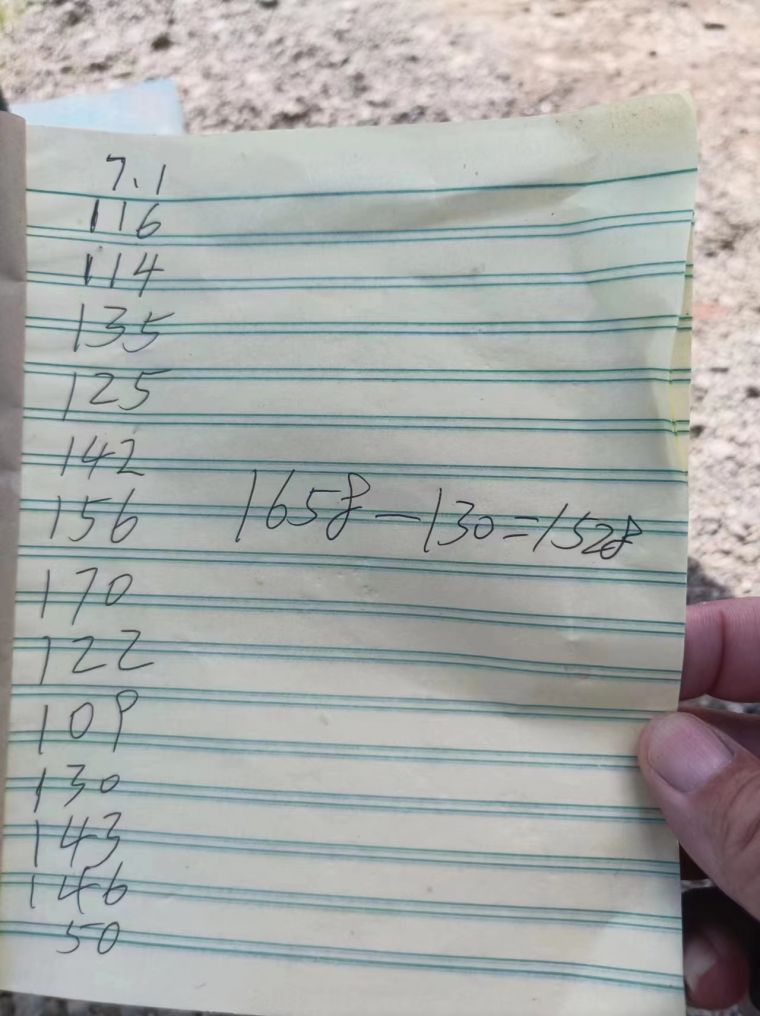 7.1
116
114
135
125
142
156
1658-130=1528
170
122
109
130
143
146
50